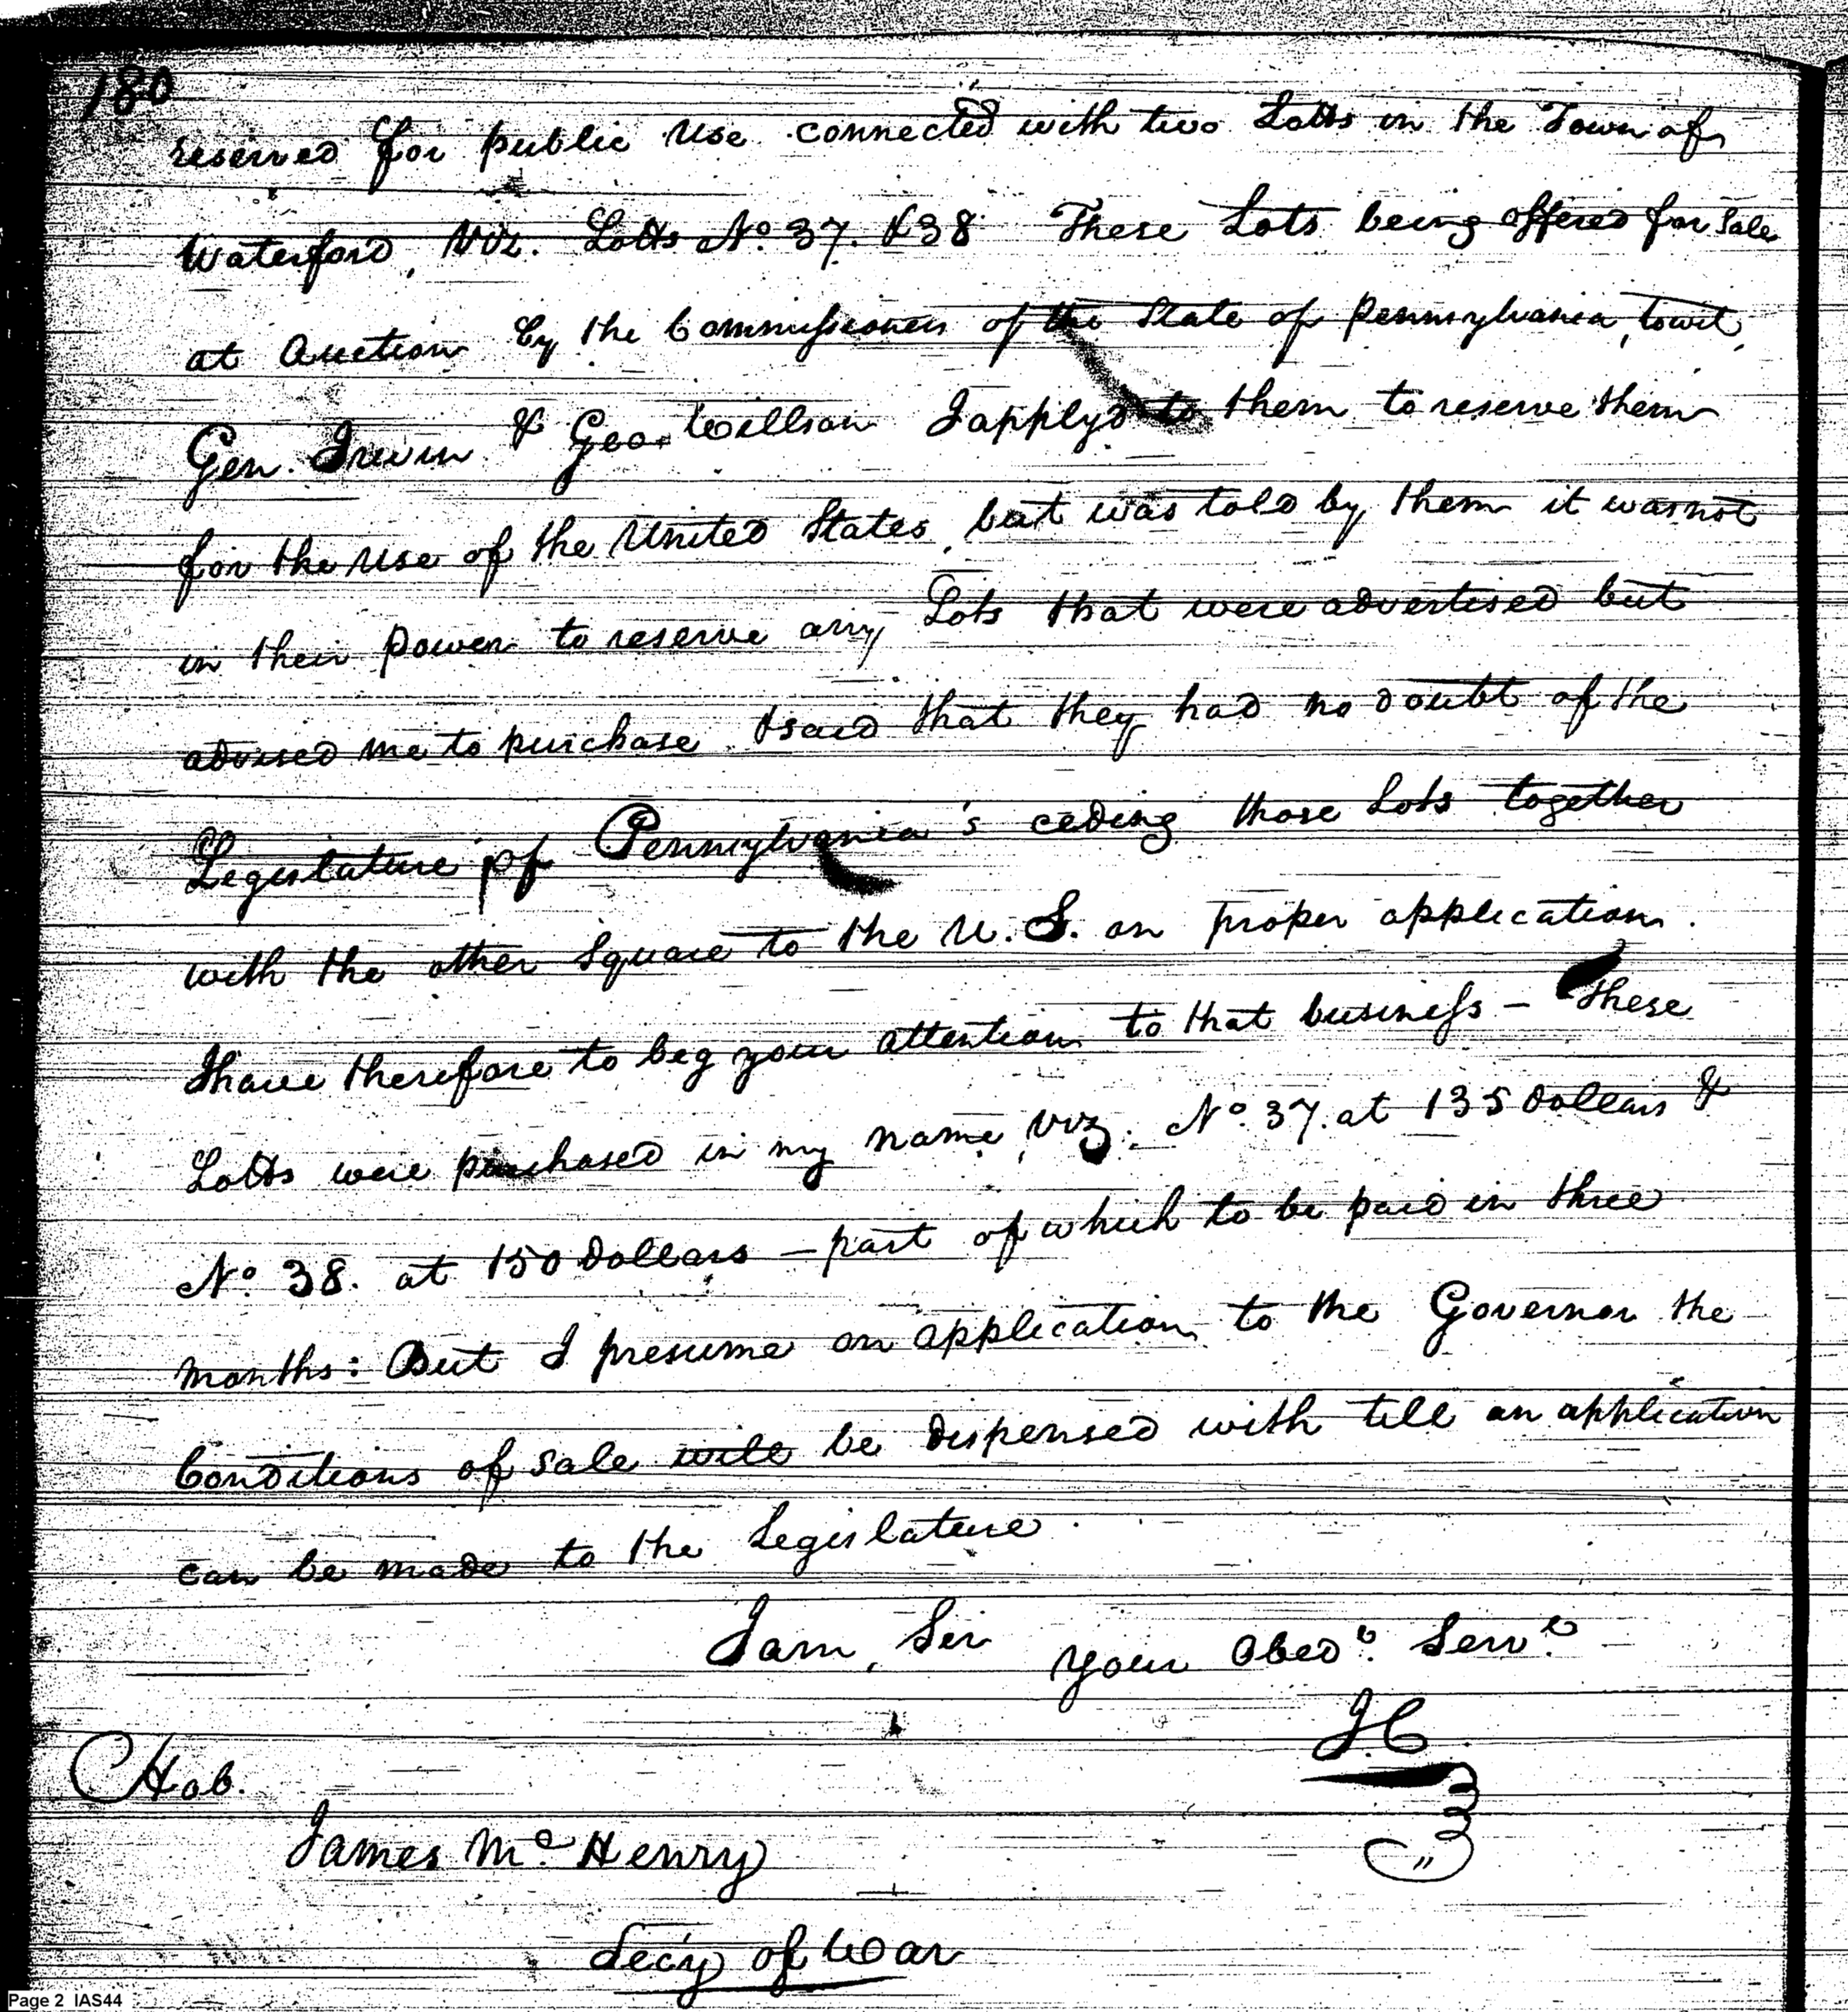 180
reserved for public Use connected with two Lotts in the Town of
Waterford, Viz. Lotts No. 37. & 38 These Lots being offered for Sale
at Auction by the Commissioners of the State of Pennsylvania, towit,
Gen. Irwin & Geo. Willson I apply'd to them to reserve them
for the Use of the United States, but was told by them it was not
in their Power to reserve any Lots that were advertised but
advised me to purchase & said that they had no doubt of the
Legislature of Pennsylvania's ceding those Lots together
with the other Square to the U. S. on proper application.
I have therefore to beg your attention to that business – These
Lotts were purchased in my name, Viz: No. 37. at 135 Dollars &
No. 38. at 150 Dollars – part of which to be paid in three
months: But I presume on application to the Governor the
Conditions of Sale will be dispensed with till an application
can be made to the Legislature.
I am, Sir your Obedt. Servt.
J.C.
Hob.
James McHenry
Secy of War
Page 2 IAS44